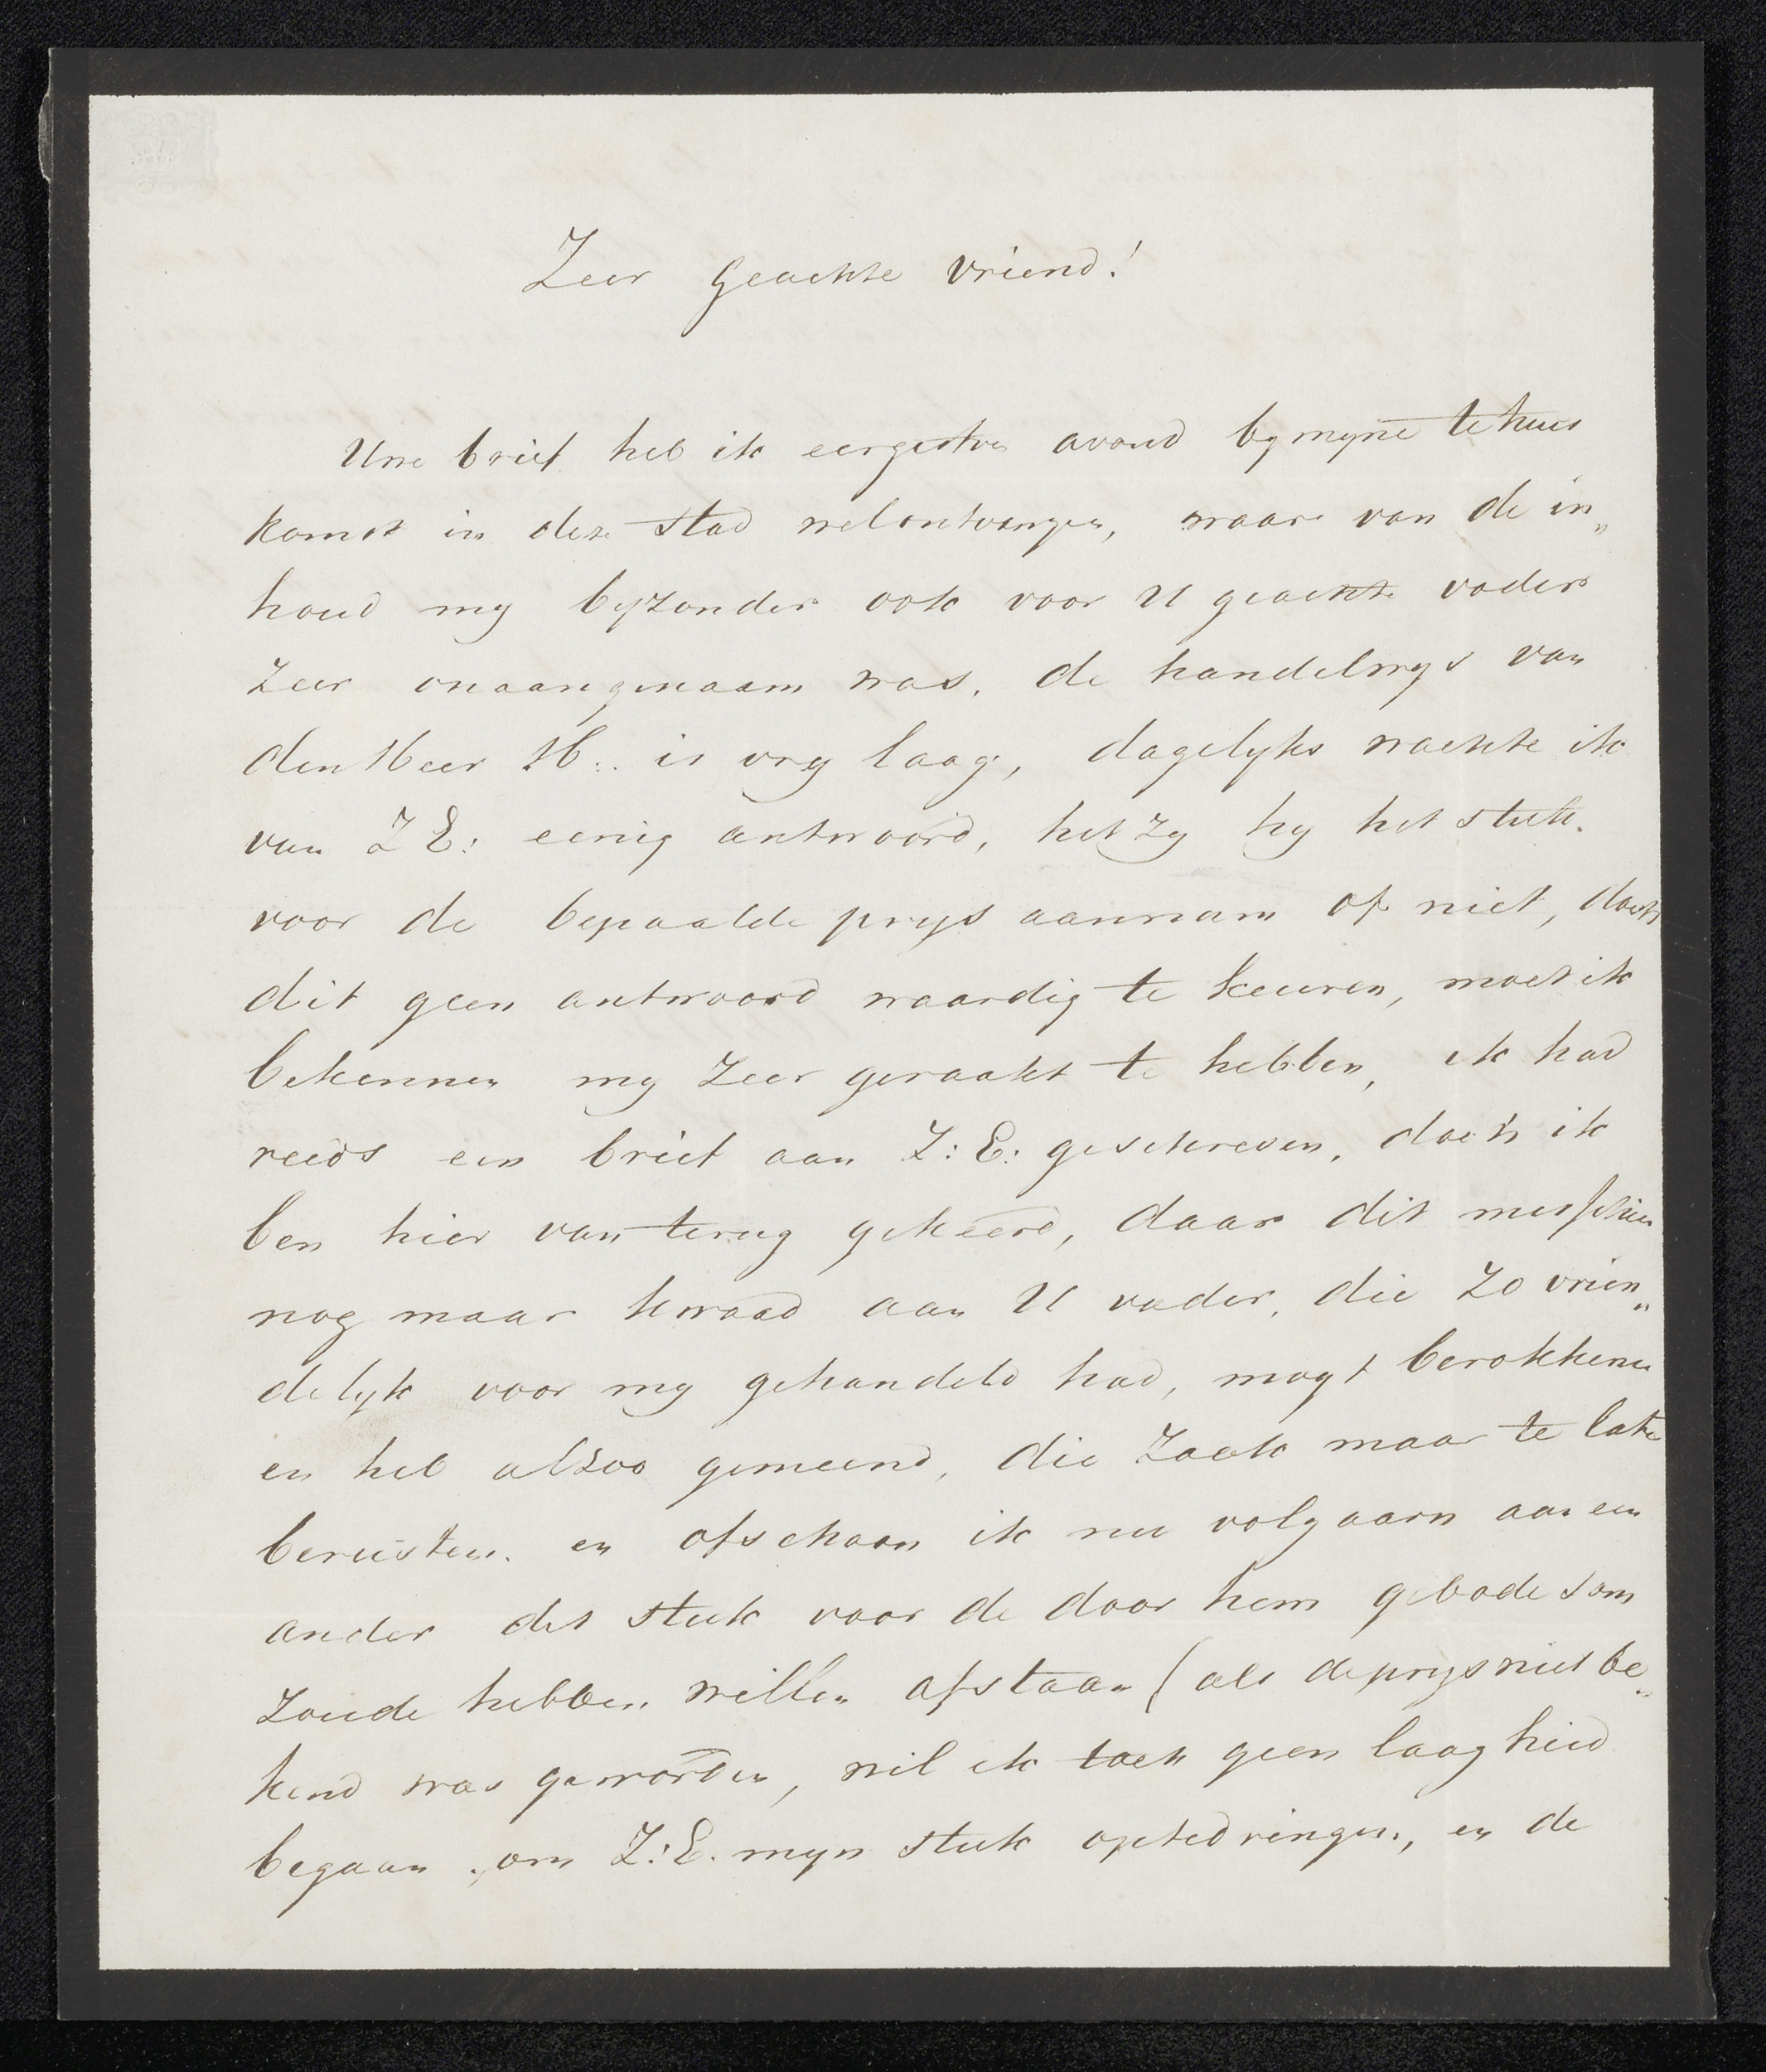 Zeer geachte vriend!
Uwe brief heb ik eergistren avond by myne te huis
komst in deze stad wel ontvangen, waar van de in„
houd my byzonder ook voor U geachte vader
zeer onaangenaam was. de handelwys van
den Heer H.. is vry laag, dagelyks wachte ik
van Z E: eenig antwoord, het zy hy het stuk
voor de bepaalde prys aannam of niet, doch
dit geen antwoord waardig te keuren, moet ik
bekennen my zeer geraakt te hebben, ik had
reeds een brief aan Z: E: geschreven, doch ik
ben hier van terug gekeerd, daar dit misschien
nog maar kwaad aan U vader, die zo vrien„
delyk voor my gehandeld had, mogt berokkenen
en heb alzoo gemeend, die zaak maar te laten
berusten. en ofschoon ik nu volgaarn aan een
ander dit stuk voor de door hem gebode som
zoude hebben willen afstaan (als de prys niet be„
kend was geworden, wil ik toch geen laagheid
begaan, om Z: E. myn stuk optedringen, en de